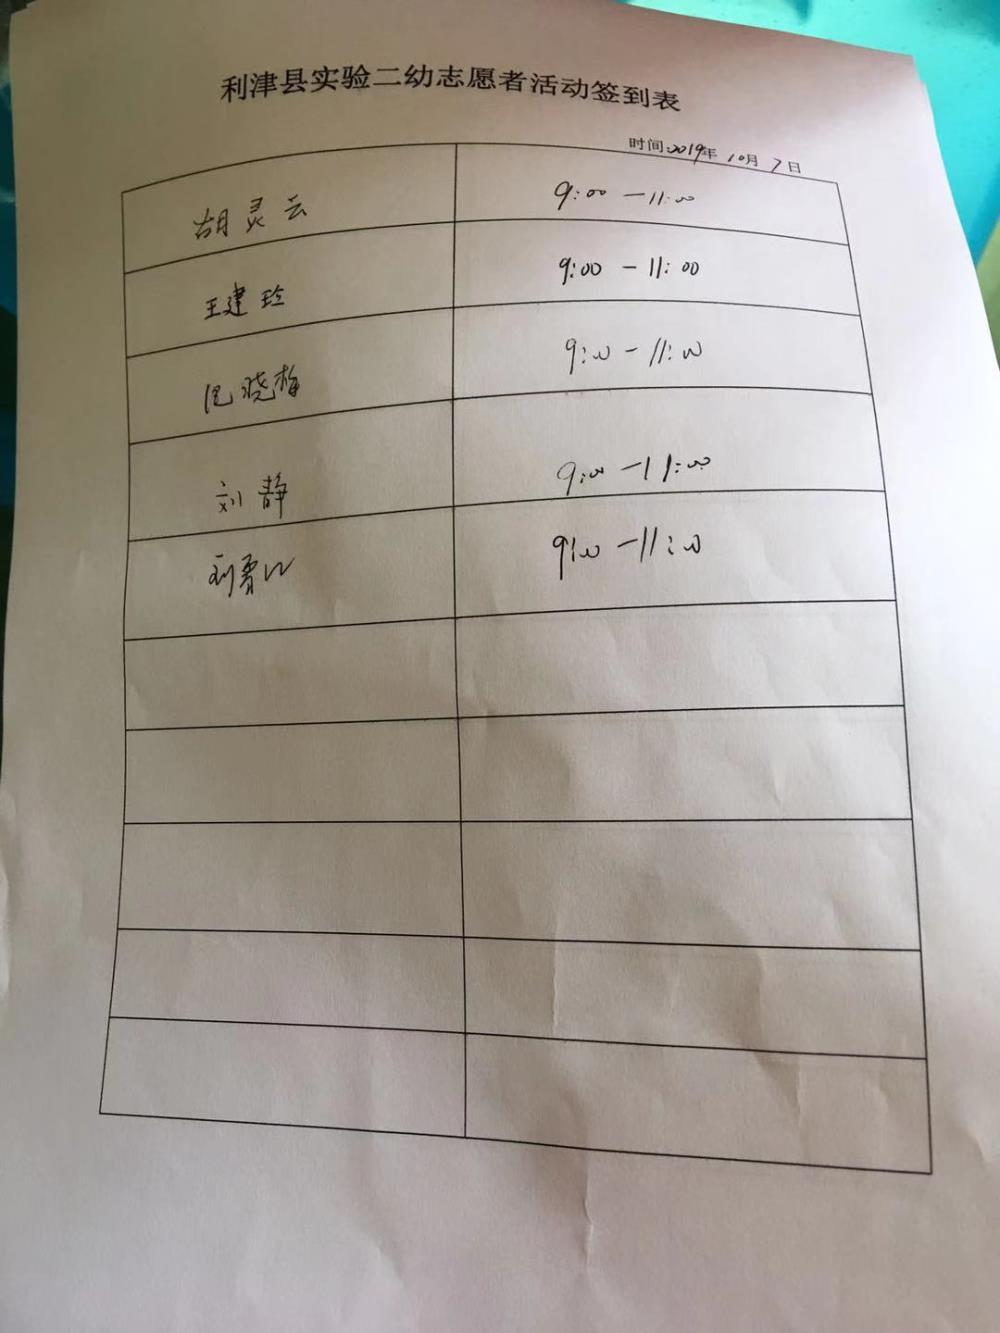 利津县实验二幼志愿者活动签到表
时间2019年10月7日
胡灵云 9:00-11:00
王建玲 9:00-11:00
晓梅 9:00-11:00
刘静 9:00-11:00
刘 9:00-11:00